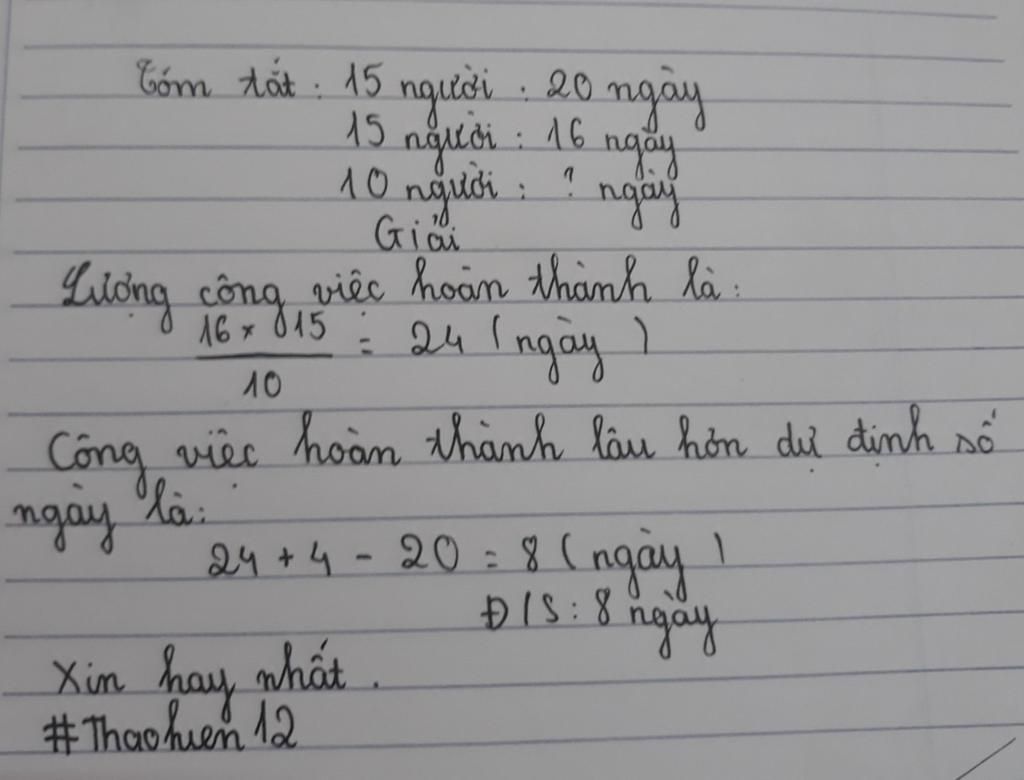 Tóm tắt : 15 người : 20 ngày
15 người : 16 ngày
10 người : ? ngày
Giải
Lượng công việc hoàn thành là :
16 x 15 / 10 = 24 ( ngày )
Công việc hoàn thành lâu hơn dự định số
ngày là :
24 + 4 - 20 = 8 ( ngày )
Đ/S : 8 ngày
Xin hay nhất .
#Thaohuen12